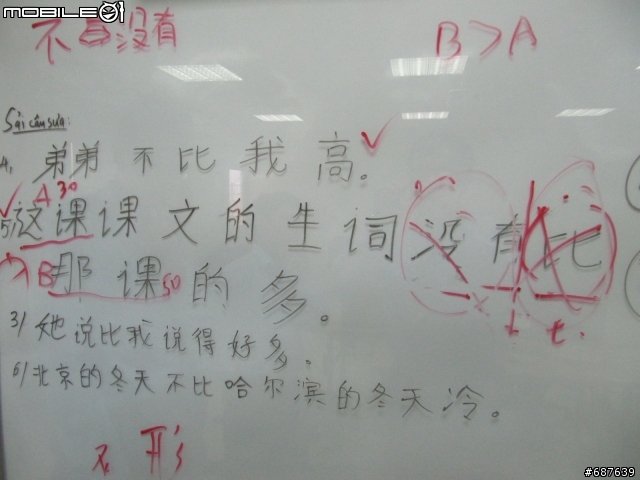 MOBILE01
不 没有
B > A
Sai câu sửa:
A, 弟弟不比我高。
A 30
5/ 这课课文的生词没有比
B 那课 50 的多。
3/ 她说比我说得好多。
6/ 北京的冬天不比哈尔滨的冬天冷。
形
#687639